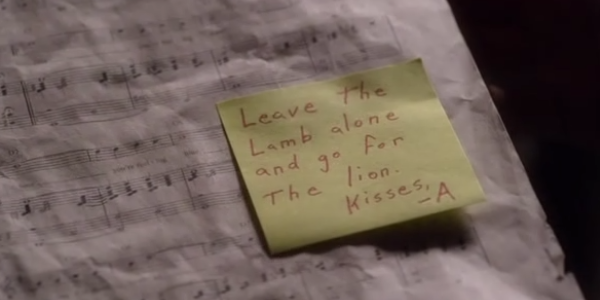 Leave The
Lamb alone
and go for
The lion.
Kisses,
-A